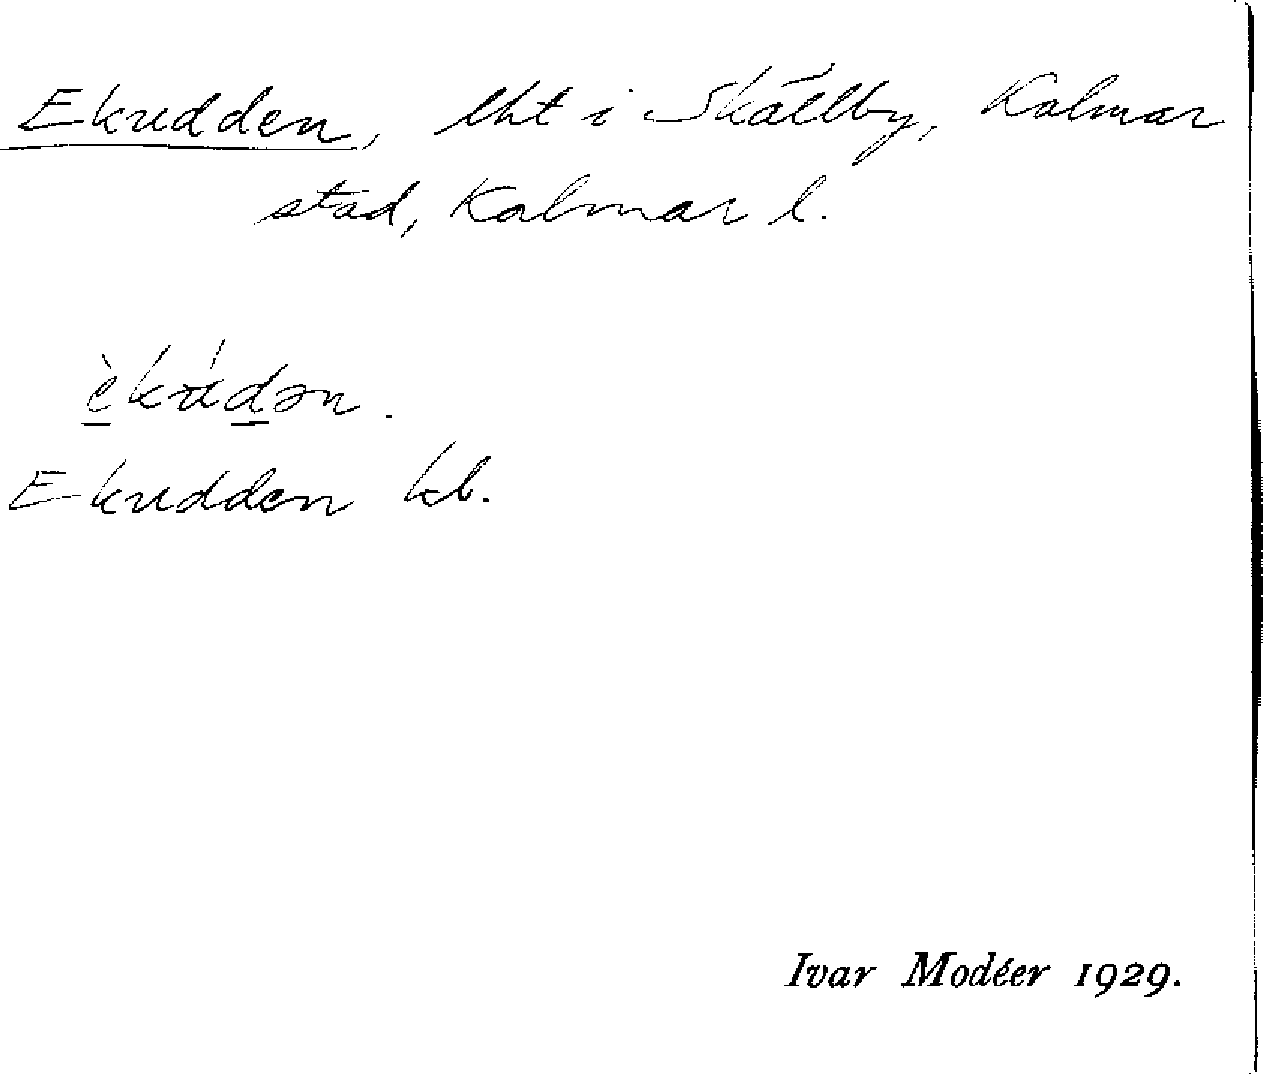 Ekudden, lht i Skälby, Kalmar
stad, Kalmar l.
èkúdən.
Ekudden kb.
Ivar Modéer 1929.